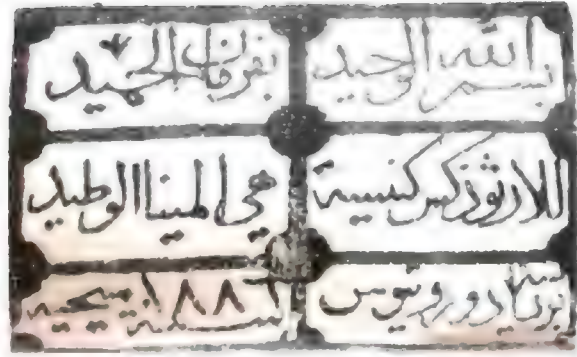 بسم الله الوحيد بفرمان الحميد
للارثوذكس كنيسة هي المينا الوطيد
دوروتيوس سنة مسيحيه